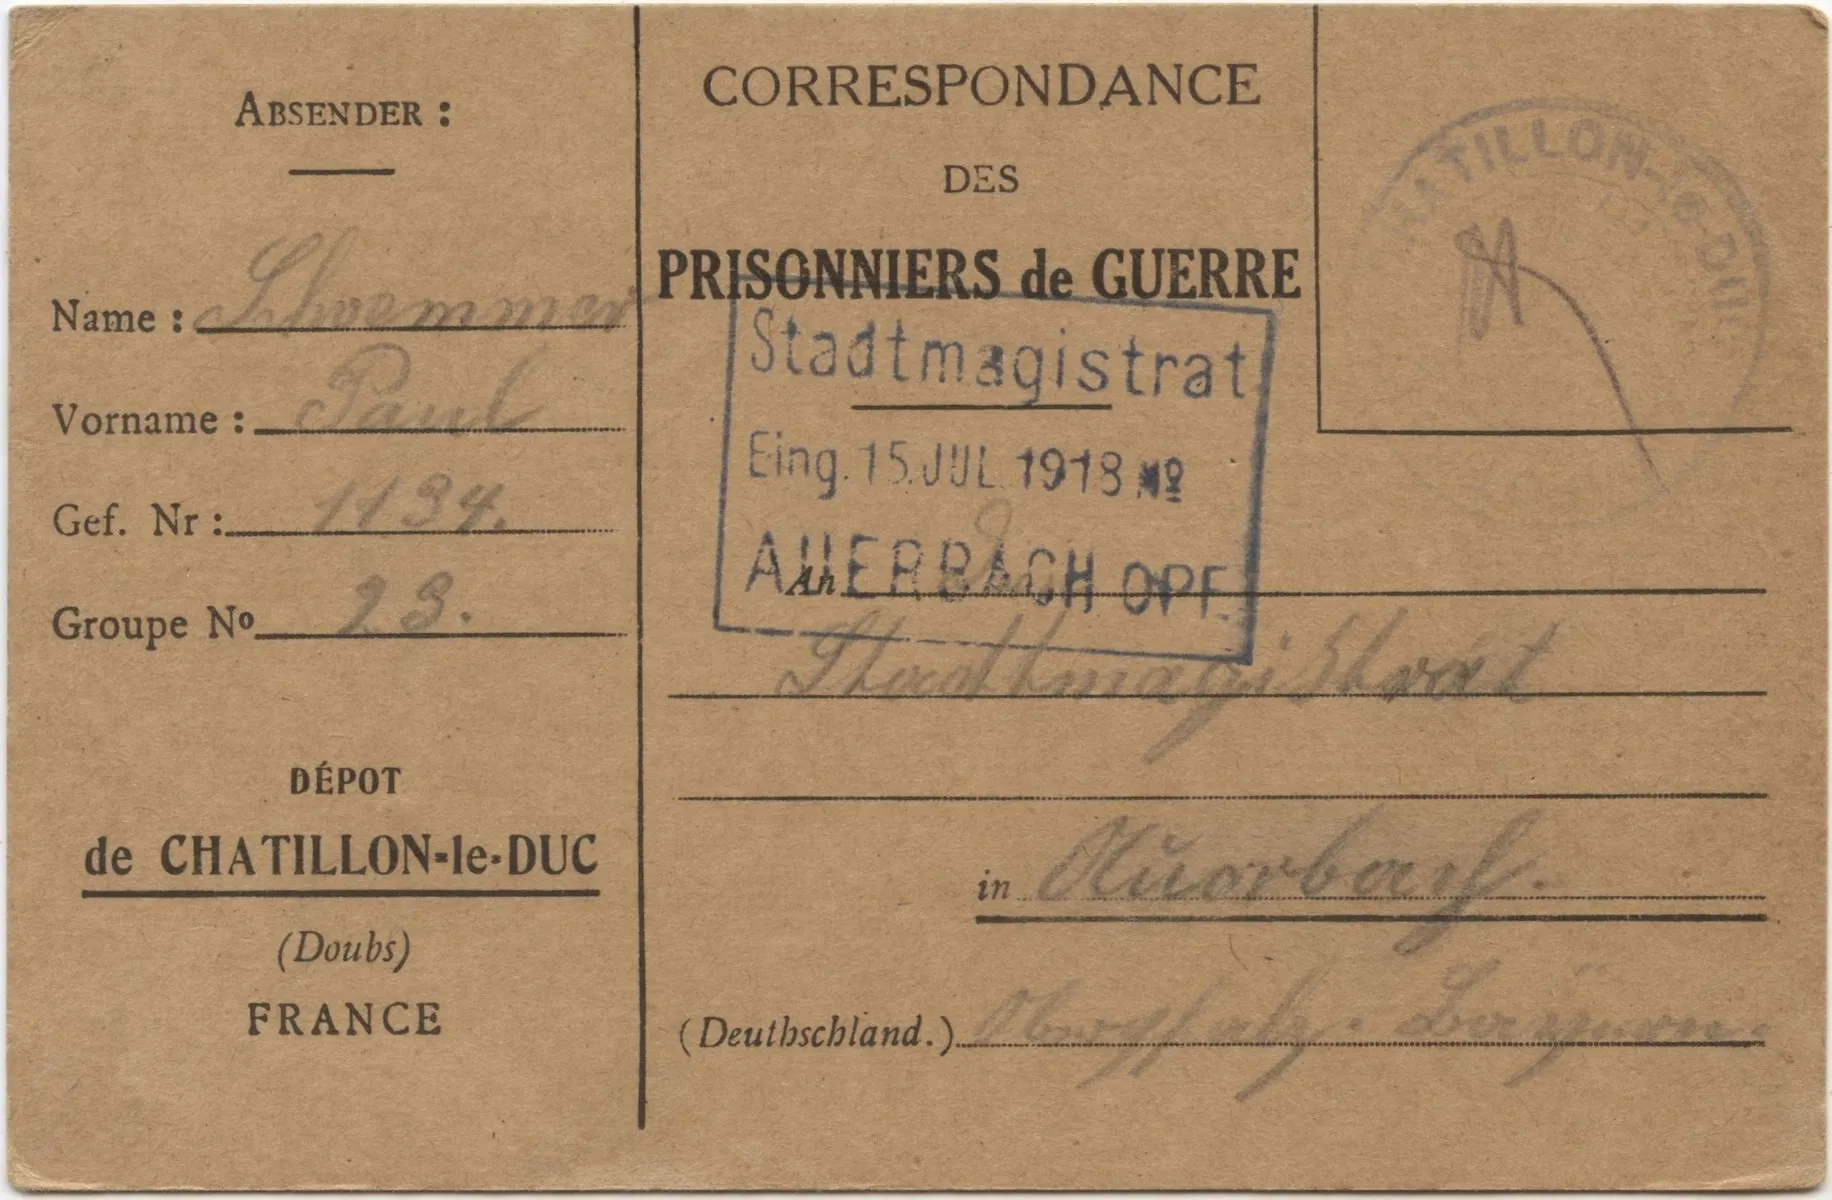 ABSENDER :
Name :
Vorname : Paul
Gef. Nr : 1134.
Groupe Nº 23.
DÉPOT
de CHATILLON-le-DUC
(Doubs)
FRANCE
CORRESPONDANCE
DES
PRISONNIERS de GUERRE
Stadtmagistrat
Eing. 15. JUL 1918 Nº
AUERBACH OPF.
An
Stadtmagistrat
in Auerbach.
(Deuthschland.) Oberpfalz. Bayern.
CHATILLON-LE-DUC